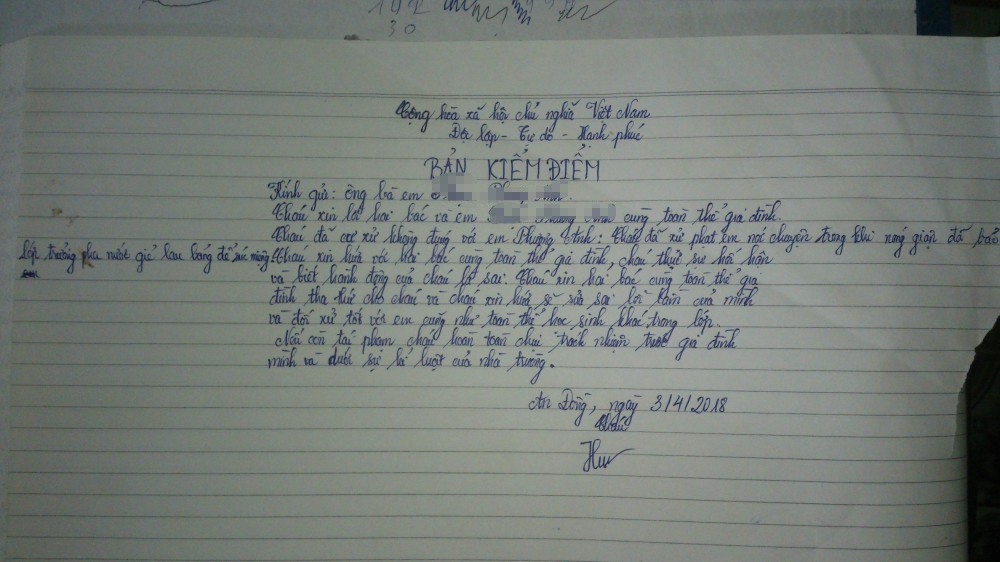 192
30
Cộng hòa xã hội chủ nghĩa Việt Nam
Độc lập - Tự do - Hạnh phúc
BẢN KIỂM ĐIỂM
Kính gửi: ông bà em
Cháu xin lỗi hai bác và em cùng toàn thể gia đình.
Cháu đã cư xử không đúng với em Phương Anh: Cháu đã xử phạt em nói chuyện trong khi nóng giận đã bảo
lớp trưởng pha nước giẻ lau bảng để súc miệng
Cháu xin hứa với hai bác cùng toàn thể gia đình, cháu thực sự hối hận
và biết hành động của cháu là sai: Cháu xin hai bác cùng toàn thể gia
đình tha thứ cho cháu và cháu xin hứa sẽ sửa sai lỗi lầm của mình
và đối xử tốt với em cũng như toàn thể học sinh khác trong lớp.
Nếu còn tái phạm cháu hoàn toàn chịu trách nhiệm trước gia đình
mình và dưới sự kỉ luật của nhà trường.
An Đồng, ngày 3/4/2018
Cháu